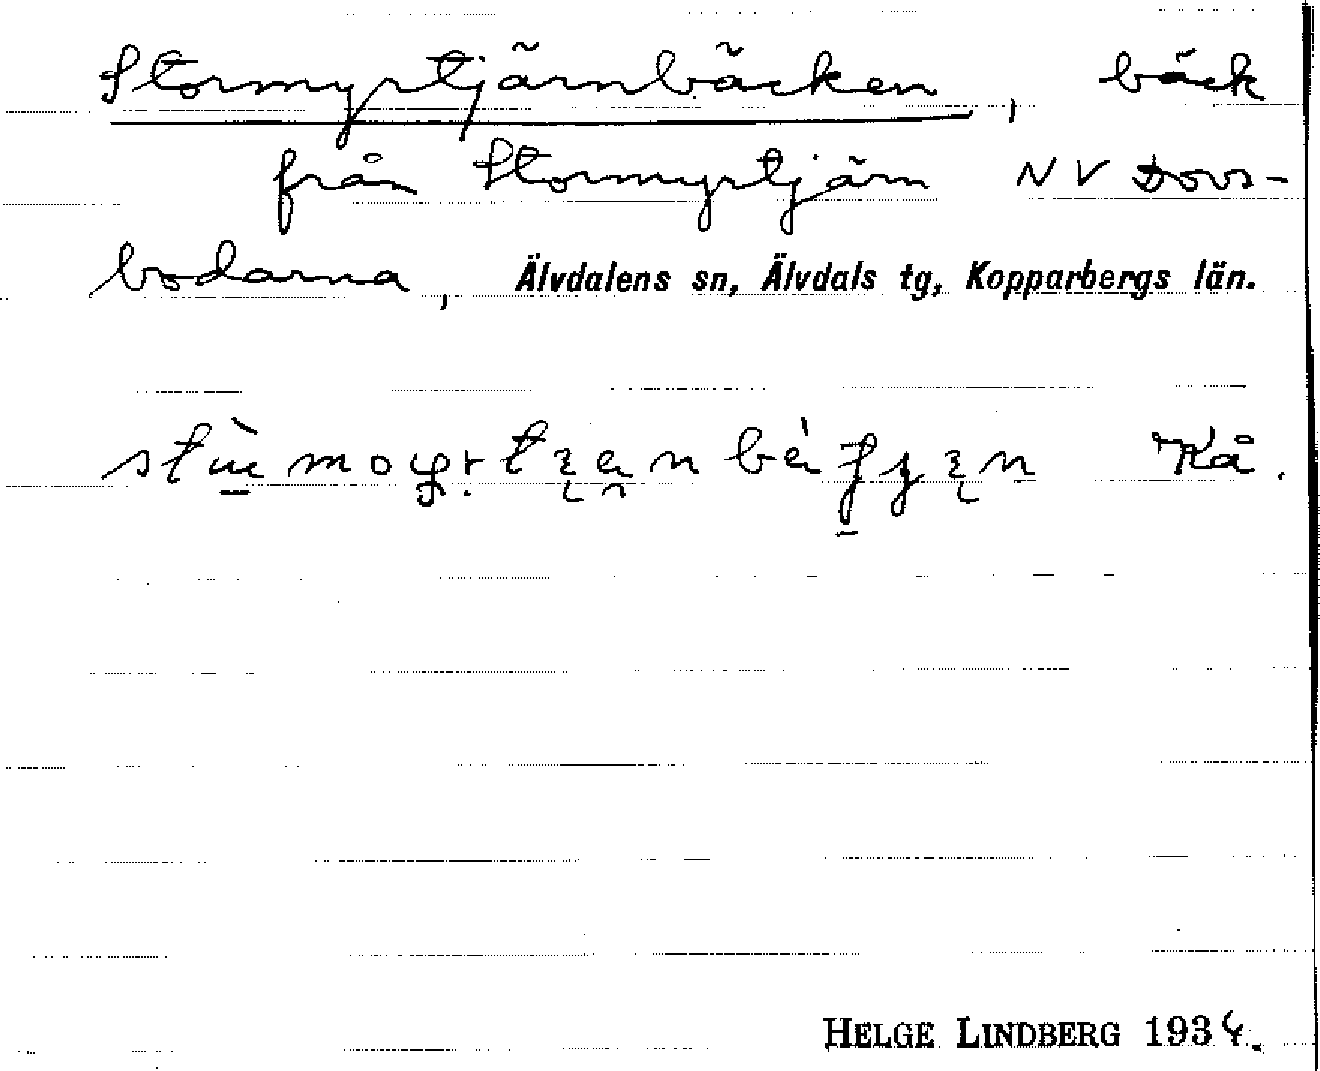 Stormyrtjärnbäcken, bäck
från Stormyrtjärn NV Dovs-
bodarna, Älvdalens sn, Älvdals tg, Kopparbergs län.
Kå.
HELGE LINDBERG 1934.